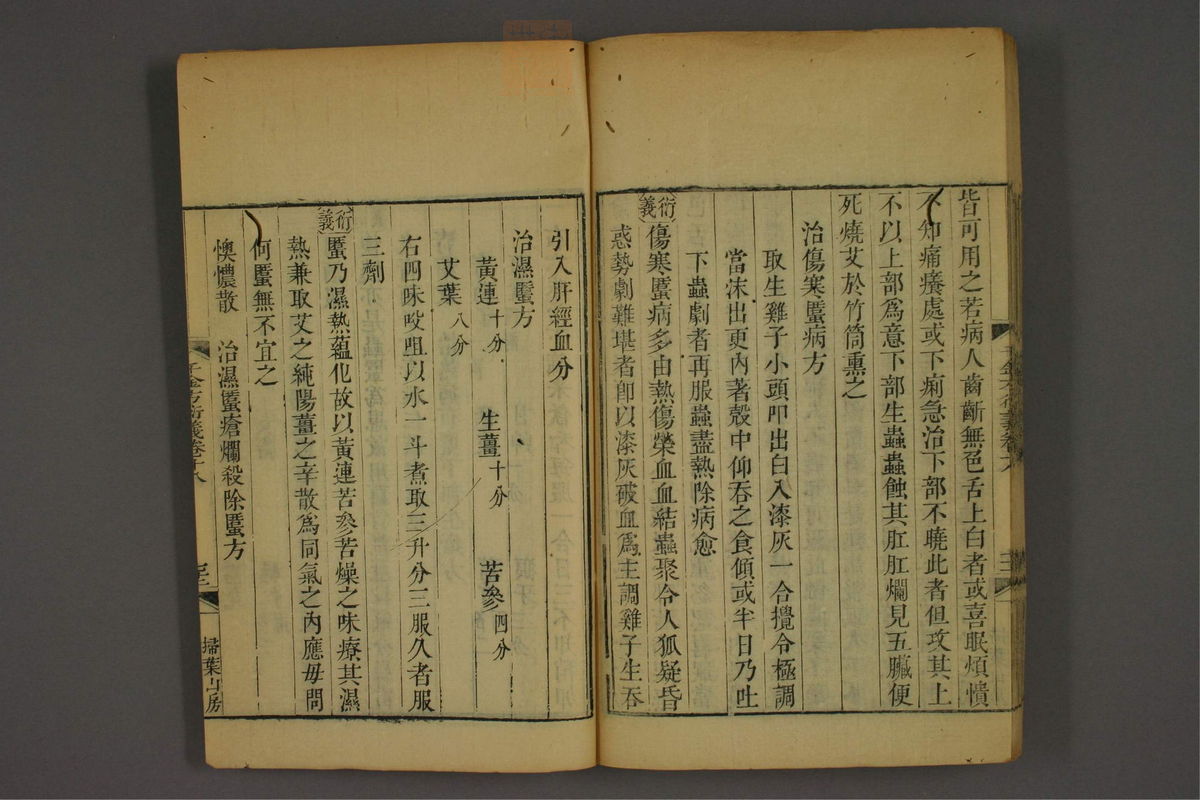 皆可用之若病人齒齗無色舌上白者或喜眠煩憒
不知痛癢處或下痢急治下部不曉此者但攻其上
不以上部爲意下部生蟲蟲蝕其肛肛爛見五臟便
死燒艾於竹筒熏之
治傷寒䘌病方
取生雞子小頭叩出白入漆灰一合攪令極調
當沫出更內著殼中仰吞之食頃或半日乃吐
下蟲劇者再服蟲盡熱除病愈
衍義傷寒䘌病多由熱傷榮血血結蟲聚令人狐疑昏
惑勢劇難堪者卽以漆灰破血爲主調雞子生吞
引入肝經血分
治濕䘌方
黃連十分 生薑十分 苦參四分
艾葉八分
右四味㕮咀以水一斗煮取三升分三服久者服
三劑
衍義䘌乃濕熱蘊化故以黃連苦參苦燥之味療其濕
熱兼取艾之純陽薑之辛散爲同氣之內應毋問
何䘌無不宜之
懊憹散 治濕䘌瘡爛殺除䘌方
千金方衍義卷十八
掃葉山房